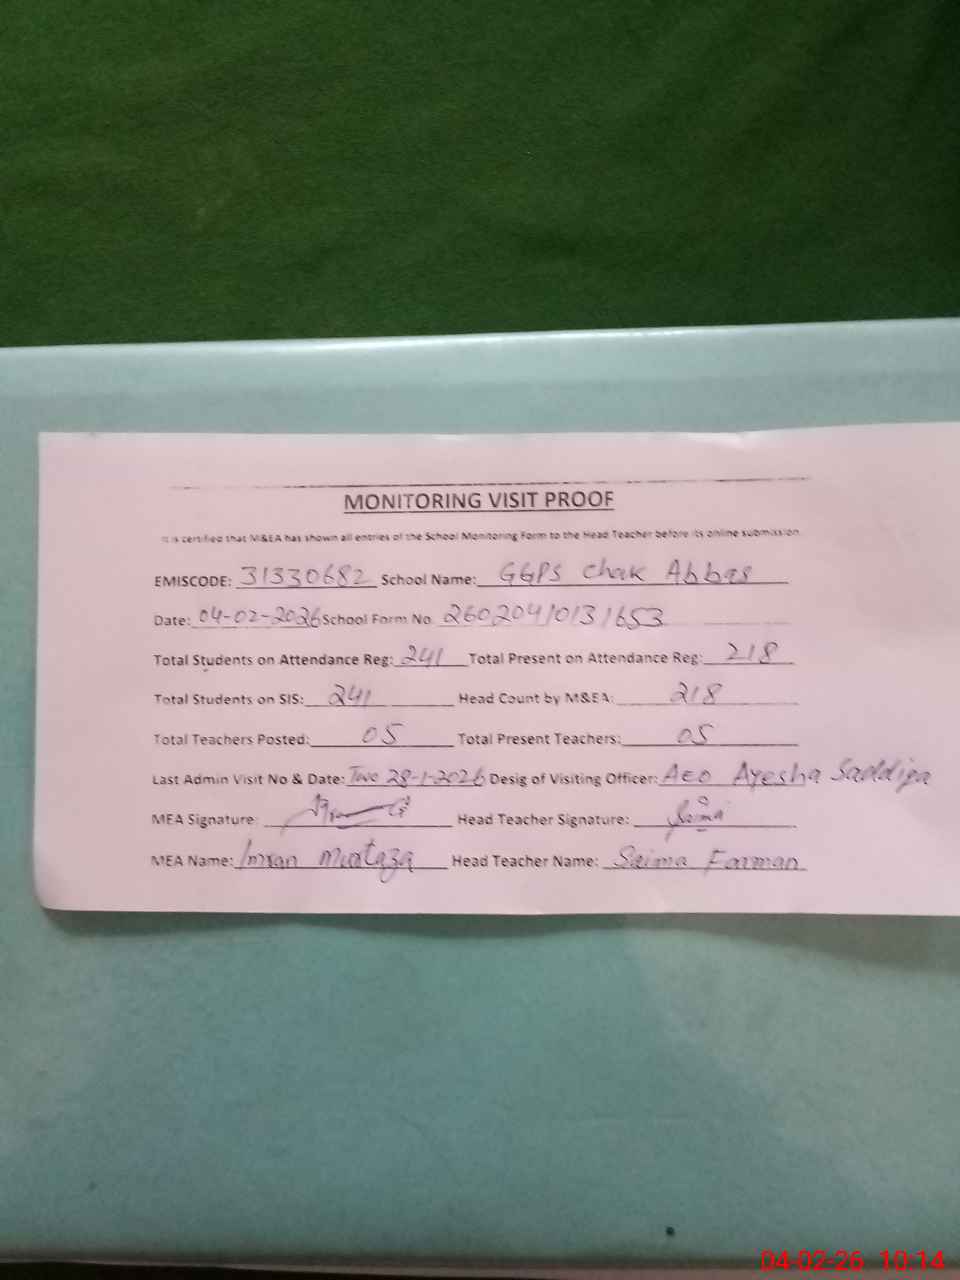 MONITORING VISIT PROOF
It is certified that M&EA has shown all entries of the School Monitoring Form to the Head Teacher before its online submission.
EMISCODE: 31330682 School Name: GGPS Chak Abbas
Date: 04-02-2026 School Form No. 26020410131653
Total Students on Attendance Reg: 241 Total Present on Attendance Reg: 218
Total Students on SIS: 241 Head Count by M&EA: 218
Total Teachers Posted: 05 Total Present Teachers: 05
Last Admin Visit No & Date: Two 28-1-2026 Desig of Visiting Officer: AEO Ayesha Saddiqa
MEA Signature: Head Teacher Signature: Saima
MEA Name: Imran Murtaza Head Teacher Name: Saima Farman
04-02-26 10:14